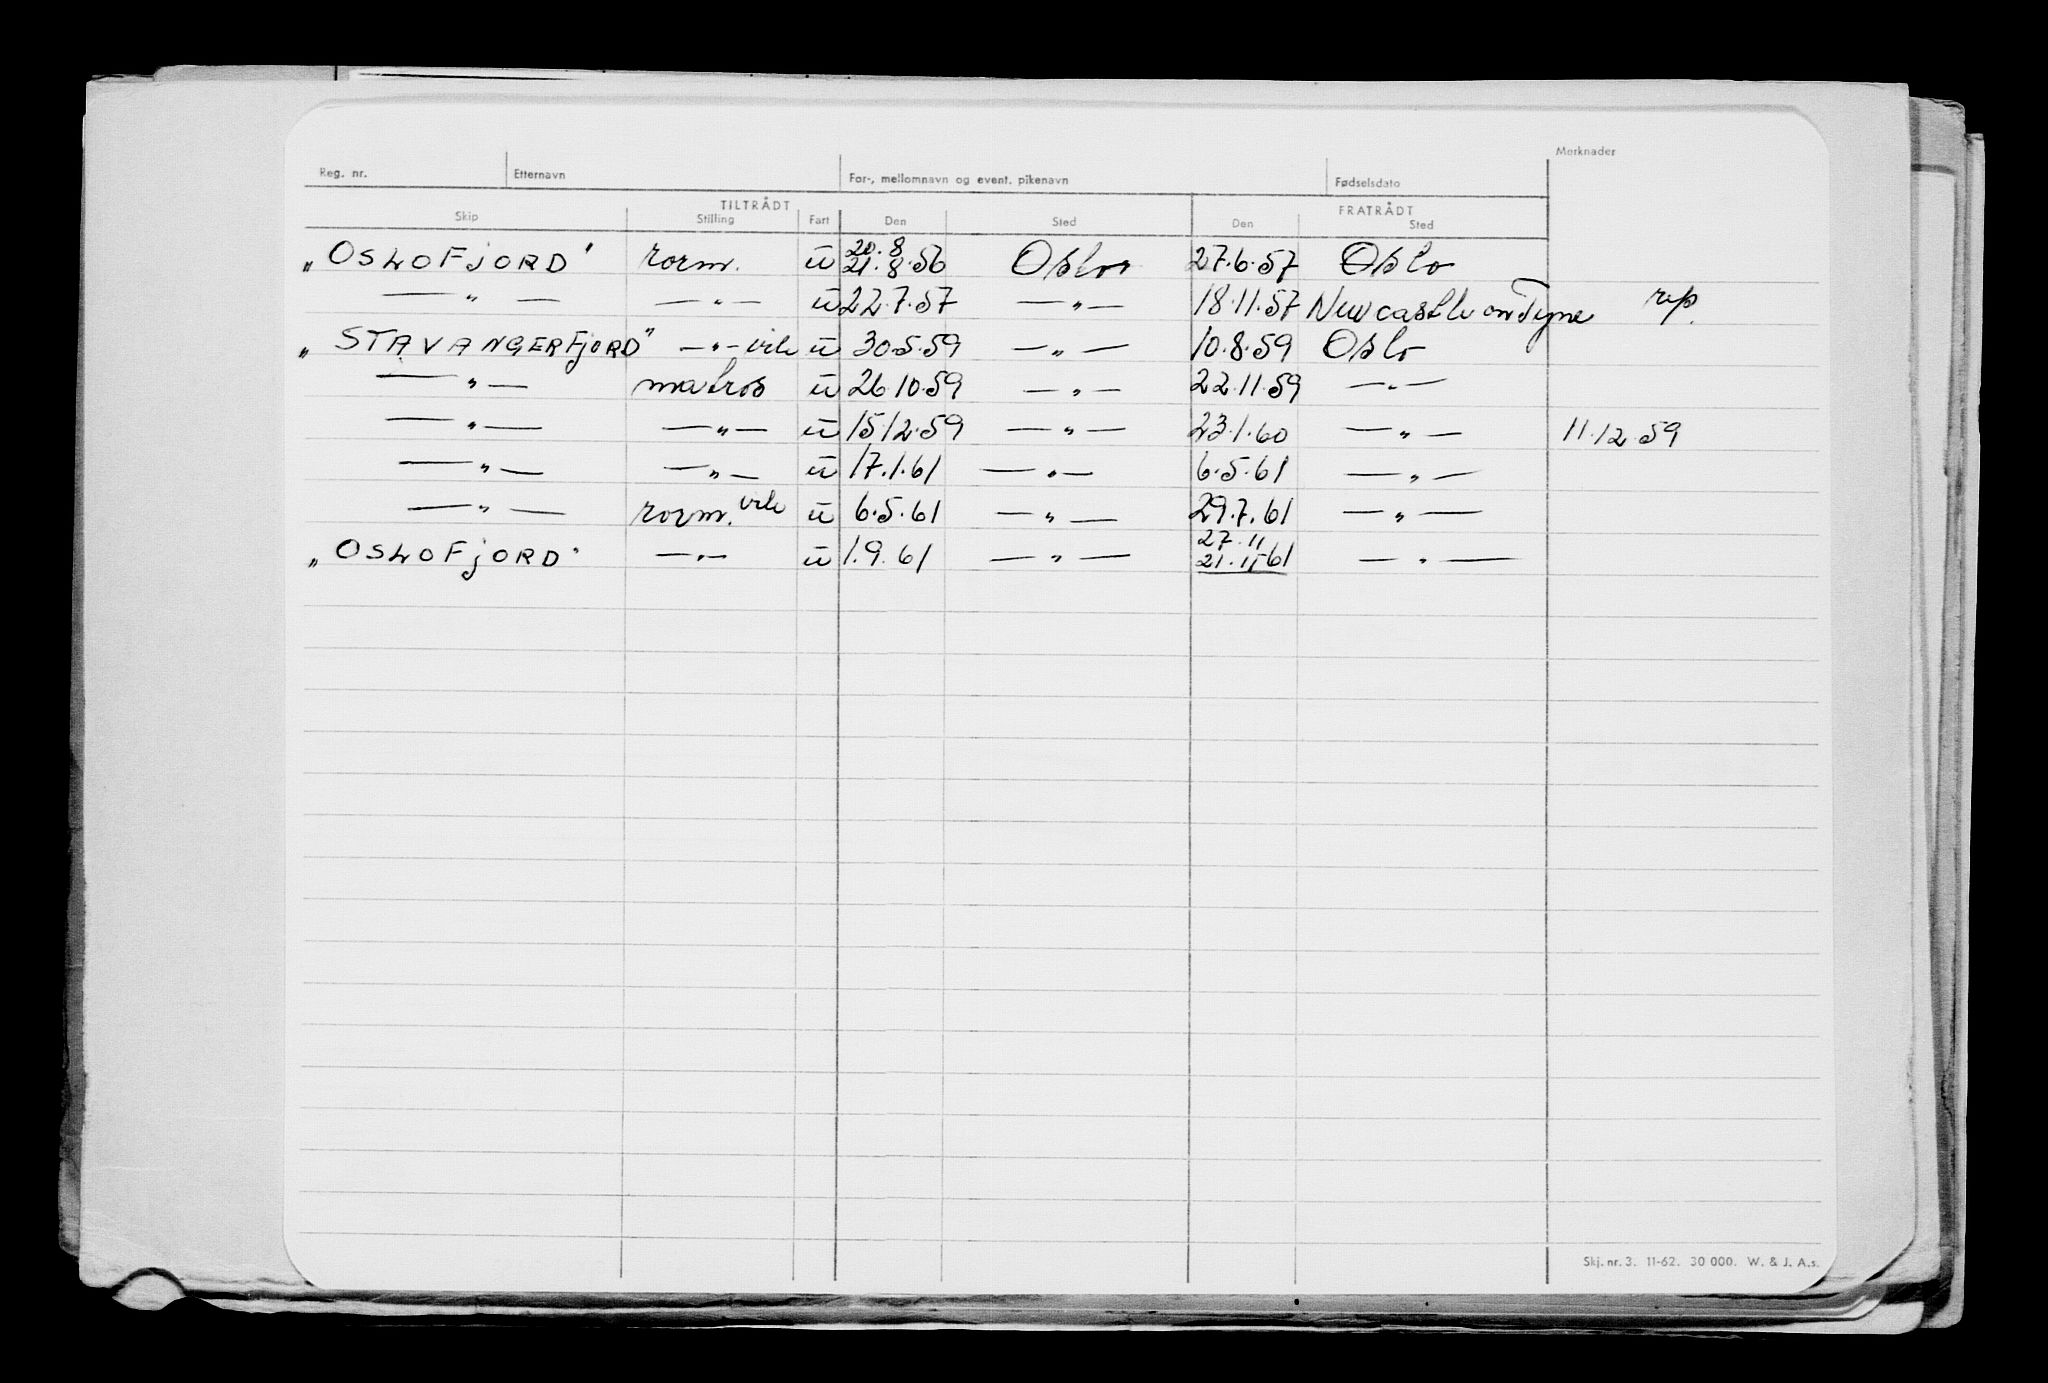 Merknader
Reg. nr. Etternavn For-, mellomnavn og event. pikenavn Fødselsdato
TILTRÅDT FRATRÅDT
Skip Stilling Fart Den Sted Den Sted
20. 8
"OSLOFJORD" rorm. u 21. 8. 56 Oslo 27.6.57 Oslo
— " — — " — u 22.7.57 — " — 18.11.57 Newcastle on Tyne rep.
"STAVANGERFJORD" — " — vik u 30.5.59 — " — 10.8.59 Oslo
— " — matros u 26.10.59 — " — 22.11.59 — " —
— " — — " — u 15.12.59 — " — 23.1.60 — " — 11.12.59
— " — — " — u 17.1.61 — " — 6.5.61 — " —
— " — rorm. vik u 6.5.61 — " — 29.7.61 — " —
27. 11
"OSLOFJORD" — " — u 1.9.61 — " — 21.11.61 — " —
Skj. nr. 3. 11-62. 30 000. W. & J. A.s.